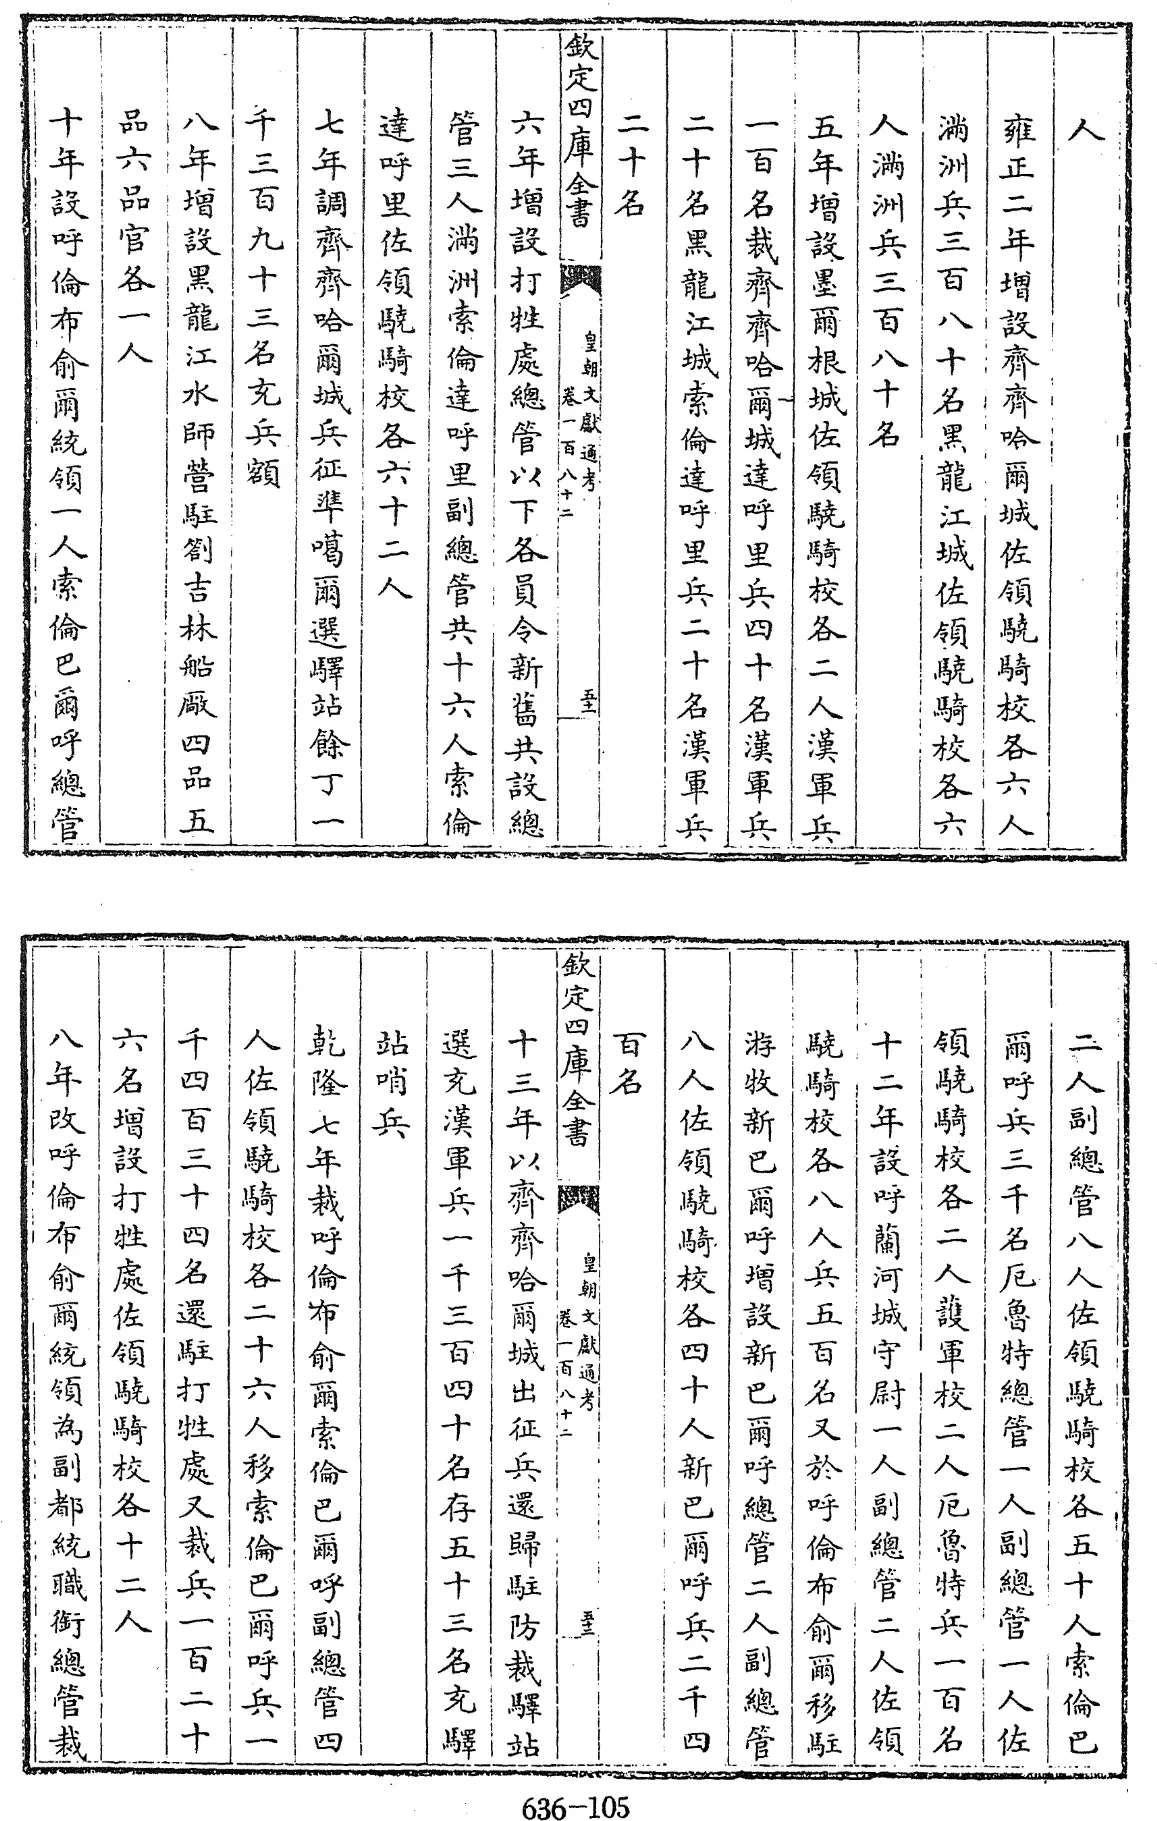 人
雍正二年增設齊齊哈爾城佐領驍騎校各六人
滿洲兵三百八十名黑龍江城佐領驍騎校各六
人滿洲兵三百八十名
五年增設墨爾根城佐領驍騎校各二人漢軍兵
一百名裁齊齊哈爾城達呼里兵四十名漢軍兵
二十名黑龍江城索倫達呼里兵二十名漢軍兵
二十名
欽定四庫全書
皇朝文獻通考
卷一百八十二
六年增設打牲處總管以下各員令新舊共設總
管三人滿洲索倫達呼里副總管共十六人索倫
達呼里佐領驍騎校各六十二人
七年調齊齊哈爾城兵征準噶爾選驛站餘丁一
千三百九十三名充兵額
八年增設黑龍江水師營駐劄吉林船廠四品五
品六品官各一人
十年設呼倫布俞爾統領一人索倫巴爾呼總管
二人副總管八人佐領驍騎校各五十人索倫巴
爾呼兵三千名厄魯特總管一人副總管一人佐
領驍騎校各二人護軍校二人厄魯特兵一百名
十二年設呼蘭河城守尉一人副總管二人佐領
驍騎校各八人兵五百名又於呼倫布俞爾移駐
游牧新巴爾呼增設新巴爾呼總管二人副總管
八人佐領驍騎校各四十人新巴爾呼兵二千四
百名
欽定四庫全書
皇朝文獻通考
卷一百八十二
十三年以齊齊哈爾城出征兵還歸駐防裁驛站
選充漢軍兵一千三百四十名存五十三名充驛
站哨兵
乾隆七年裁呼倫布俞爾索倫巴爾呼副總管四
人佐領驍騎校各二十六人移索倫巴爾呼兵一
千四百三十四名還駐打牲處又裁兵一百二十
六名增設打牲處佐領驍騎校各十二人
八年改呼倫布俞爾統領為副都統職銜總管裁
636-105